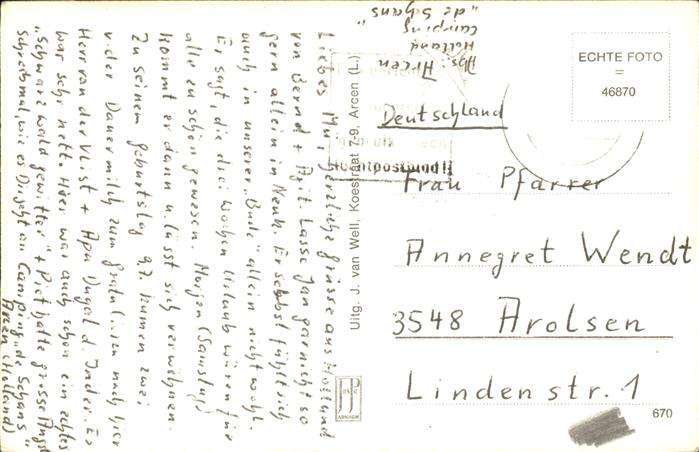 Liebes Mü, herzliche Grüsse aus Holland
von Bernd + Lasse Jan garnicht so
gern allein in Er selbst fühlt sich
auch in unserer „Bude" allein nicht wohl.
Er sagt, die drei Wochen Urlaub wären für
alle zu schön gewesen. Morgen (Samstag)
kommt er dann u. lässt sich verwöhnen.
Zu seinem Geburtstag 9.7. kamen zwei
v. der Dauermilch zum nach hier
Herr van der Vlist + der Inder. Es
war sehr nett. Hier war auch schon ein echtes
„Schwarzwaldgewitter" + Piet hatte grosse Angst
Schreib mal, wie es Dir jetzt Camping „de Schans"
Arcen (Holland)
Abs: Arcen
Holland
Camping
„de Schans"
Uitg. J. van Well, Koestraat 7-9, Arcen (L.)
ECHTE FOTO
=
46870
Deutschland
Frau Pfarrer
Annegret Wendt
3548 Arolsen
Lindenstr. 1
670